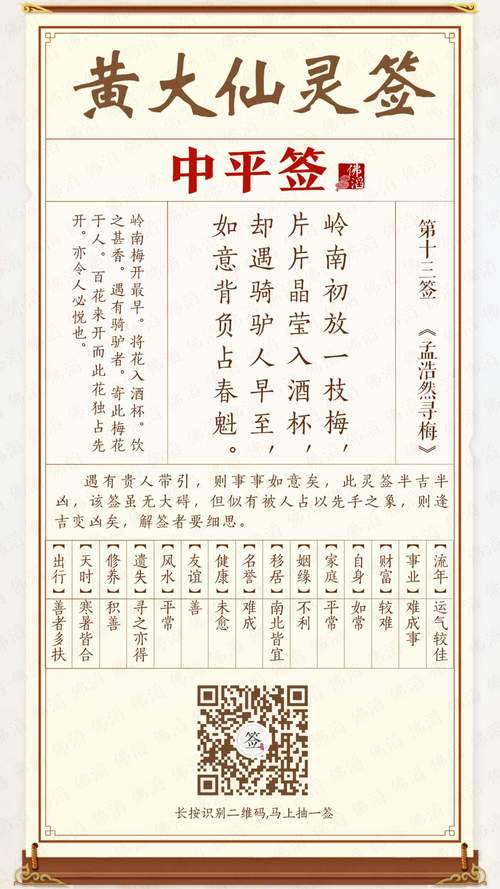 黄大仙灵签
中平签
佛滔
第十三签 《孟浩然寻梅》
岭南初放一枝梅，
片片晶莹入酒杯，
却遇骑驴人早至，
如意背负占春魁。
岭南梅开最早。将花入酒杯。饮
之甚香。遇有骑驴者。寄此梅花
于人。百花来开而此花独占先
开。亦令人必悦也。
遇有贵人带引，则事事如意矣，此灵签半吉半
凶，该签虽无大碍，但似有被人占以先手之象，则逢
吉变凶矣，解签者要细思。
【流年】运气较佳
【事业】难成事
【财富】较难
【自身】如常
【家庭】平常
【姻缘】不利
【移居】南北皆宜
【名誉】难成
【健康】未愈
【友谊】善
【风水】平常
【遗失】寻之亦得
【修养】积善
【天时】寒暑皆合
【出行】善者多扶
签
长按识别二维码,马上抽一签